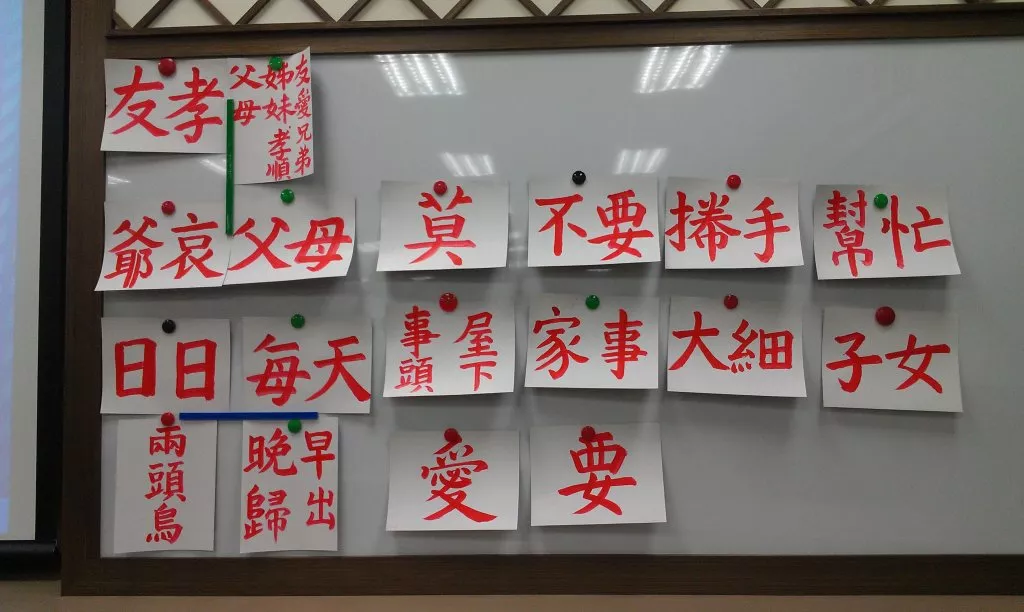 友孝
友愛兄弟
姊妹孝順
父母
爺哀
父母
莫
不要
𢯭手
幫忙
日日
每天
屋下
事頭
家事
大細
子女
兩頭烏
早出
晚歸
愛
要